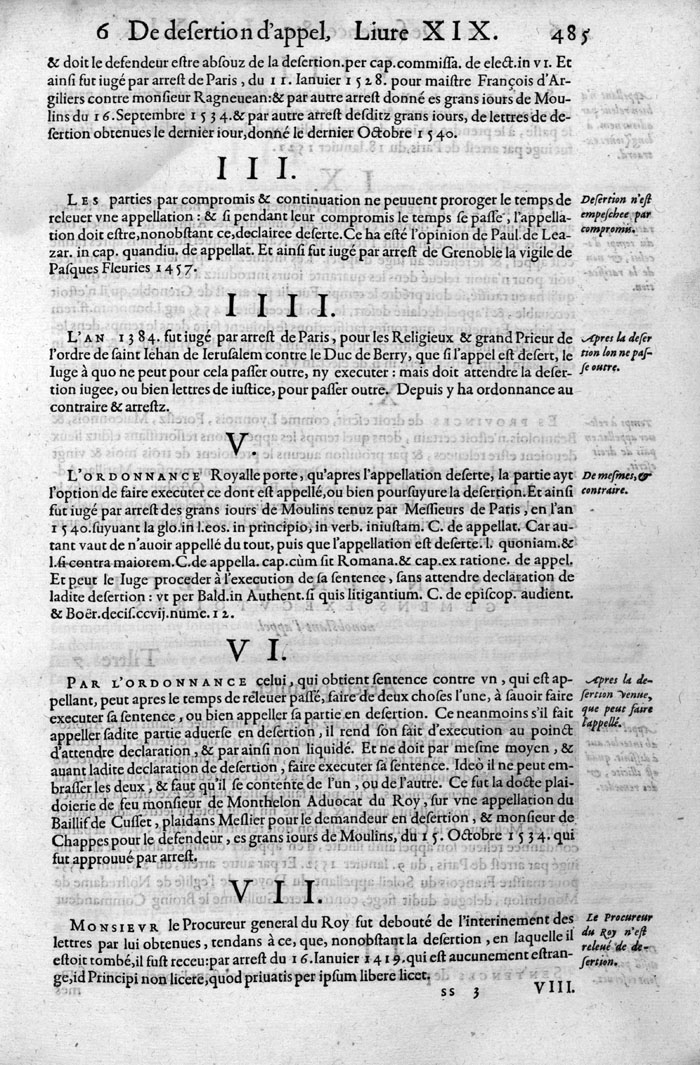 6 De desertion d'appel, Liure XIX. 485
& doit le defendeur estre absouz de la desertion.per cap.commissa. de elect.in VI. Et
ainsi fut iugé par arrest de Paris, du 11. Ianuier 1528. pour maistre François d'Ar-
giliers contre monsieur Ragneuean:& par autre arrest donné es grans iours de Mou-
lins du 16.Septembre 1534.& par autre arrest desditz grans iours, de lettres de de-
sertion obtenues le dernier iour,donné le dernier Octobre 1540.
III.
LES parties par compromis & continuation ne peuuent proroger le temps de
releuer vne appellation : & si pendant leur compromis le temps se passe, l'appella-
tion doit estre,nonobstant ce,declairee deserte.Ce ha esté l'opinion de Paul.de Lea-
zar. in cap. quandiu. de appellat. Et ainsi fut iugé par arrest de Grenoble la vigile de
Pasques Fleuries 1457.
Desertion n'est
empeschee par
compromis.
IIII.
L'AN 1384. fut iugé par arrest de Paris, pour les Religieux & grand Prieur de
l'ordre de saint Iehan de Ierusalem contre le Duc de Berry, que si l'appel est desert, le
Iuge à quo ne peut pour cela passer outre, ny executer : mais doit attendre la deser-
tion iugee, ou bien lettres de iustice, pour passer outre. Depuis y ha ordonnance au
contraire & arrestz.
Apres la deser
tion lon ne pas-
se outre.
V.
L'ORDONNANCE Royalle porte, qu'apres l'appellation deserte, la partie ayt
l'option de faire executer ce dont est appellé,ou bien poursuyure la desertion.Et ainsi
fut iugé par arrest des grans iours de Moulins tenuz par Messieurs de Paris, en l'an
1540.suyuant la glo.in l.eos. in principio, in verb. iniustam. C. de appellat. Car au-
tant vaut de n'auoir appellé du tout, puis que l'appellation est deserte. l. quoniam.&
l.si contra maiorem.C.de appella. cap.cùm sit Romana.& cap.ex ratione. de appel.
Et peut le Iuge proceder à l'execution de sa sentence, sans attendre declaration de
ladite desertion : vt per Bald.in Authent.si quis litigantium. C. de episcop. audient.
& Boër.decis.ccvij.nume.12.
De mesmes,&
contraire.
VI.
PAR L'ORDONNANCE celui, qui obtient sentence contre vn, qui est ap-
pellant, peut apres le temps de releuer passé, faire de deux choses l'une, à sauoir faire
executer sa sentence, ou bien appeller sa partie en desertion. Ce neanmoins s'il fait
appeller sadite partie aduerse en desertion, il rend son fait d'execution au poinct
d'attendre declaration, & par ainsi non liquidé. Et ne doit par mesme moyen, &
auant ladite declaration de desertion, faire executer sa sentence. Ideò il ne peut em-
brasser les deux, & faut qu'il se contente de l'un, ou de l'autre. Ce fut la docte plai-
doierie de feu monsieur de Monthelon Aduocat du Roy, sur vne appellation du
Baillif de Cusset, plaidans Meslier pour le demandeur en desertion, & monsieur de
Chappes pour le defendeur, es grans iours de Moulins, du 15. Octobre 1534. qui
fut approuué par arrest.
Apres la de-
sertion venue,
que peut faire
l'appellé.
VII.
MONSIEVR le Procureur general du Roy fut debouté de l'interinement des
lettres par lui obtenues, tendans à ce, que, nonobstant la desertion, en laquelle il
estoit tombé,il fust receu:par arrest du 16.Ianuier 1419.qui est aucunement estran-
ge,id Principi non licere,quod priuatis per ipsum libere licet.
Le Procureur
du Roy n'est
releué de de-
sertion.
ss 3 VIII.